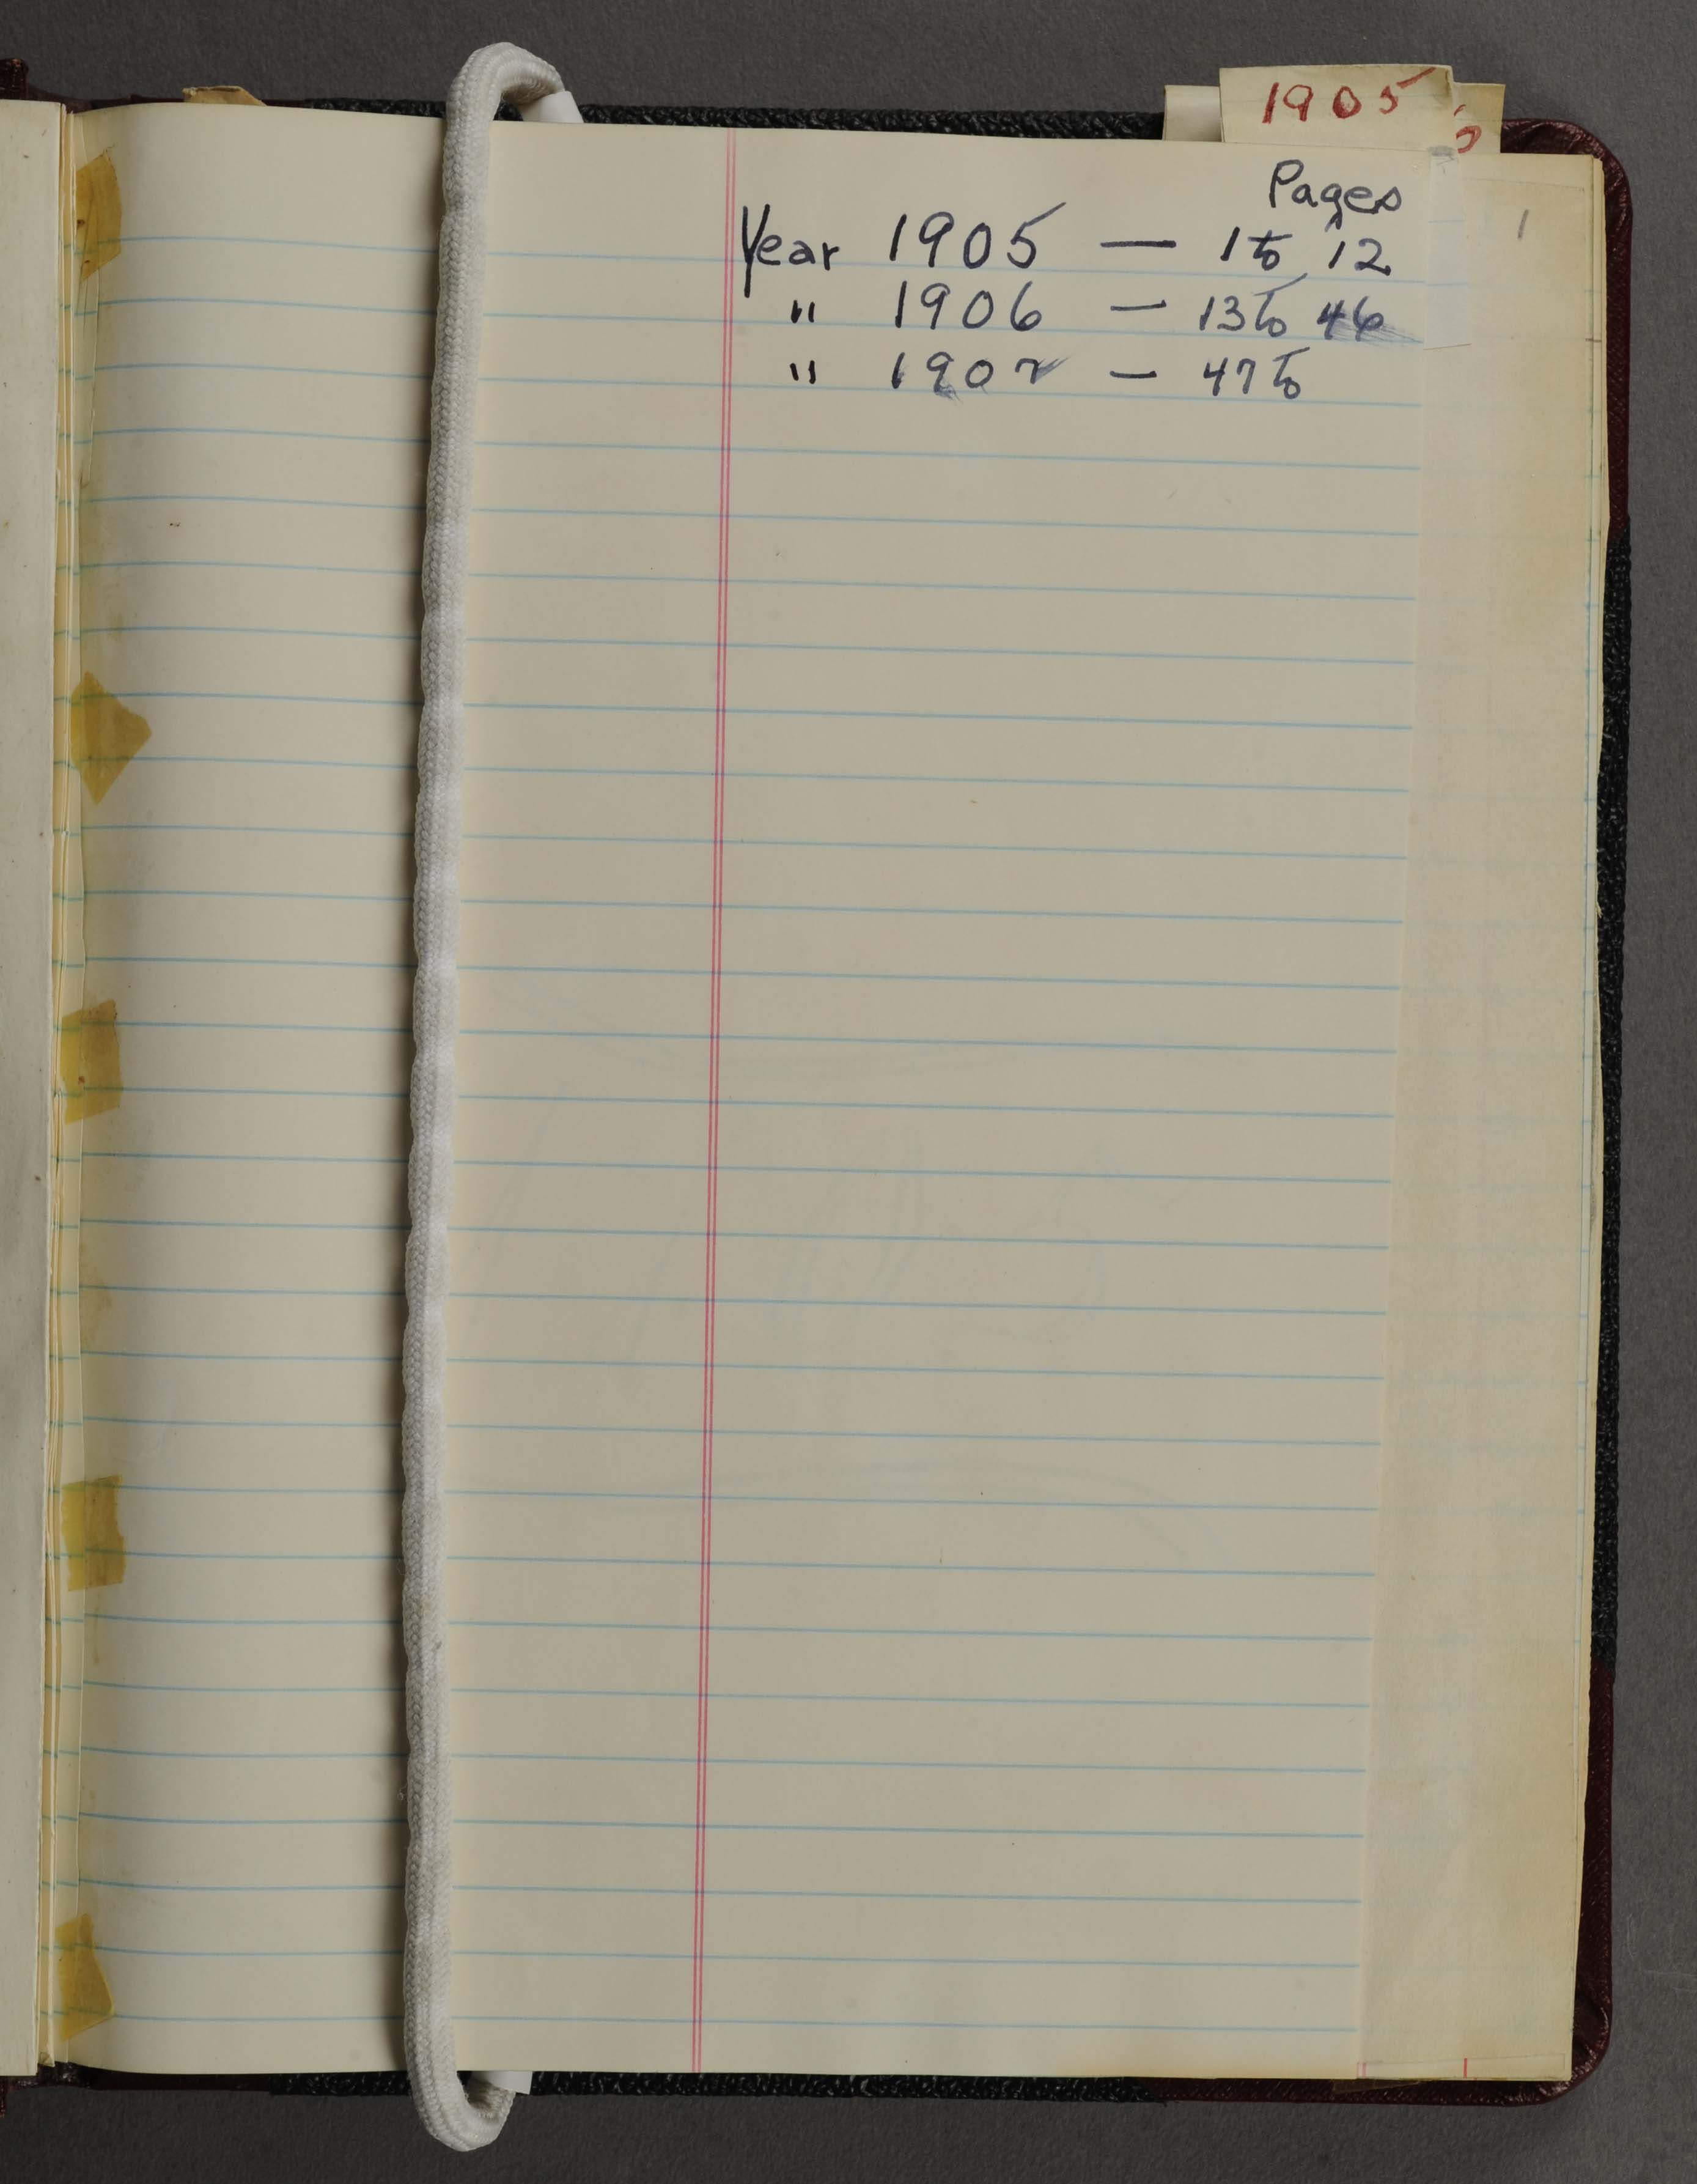 1905
Pages
1
Year 1905 — 1 to 12
" 1906 — 13 to 46
" 1907 — 47 to